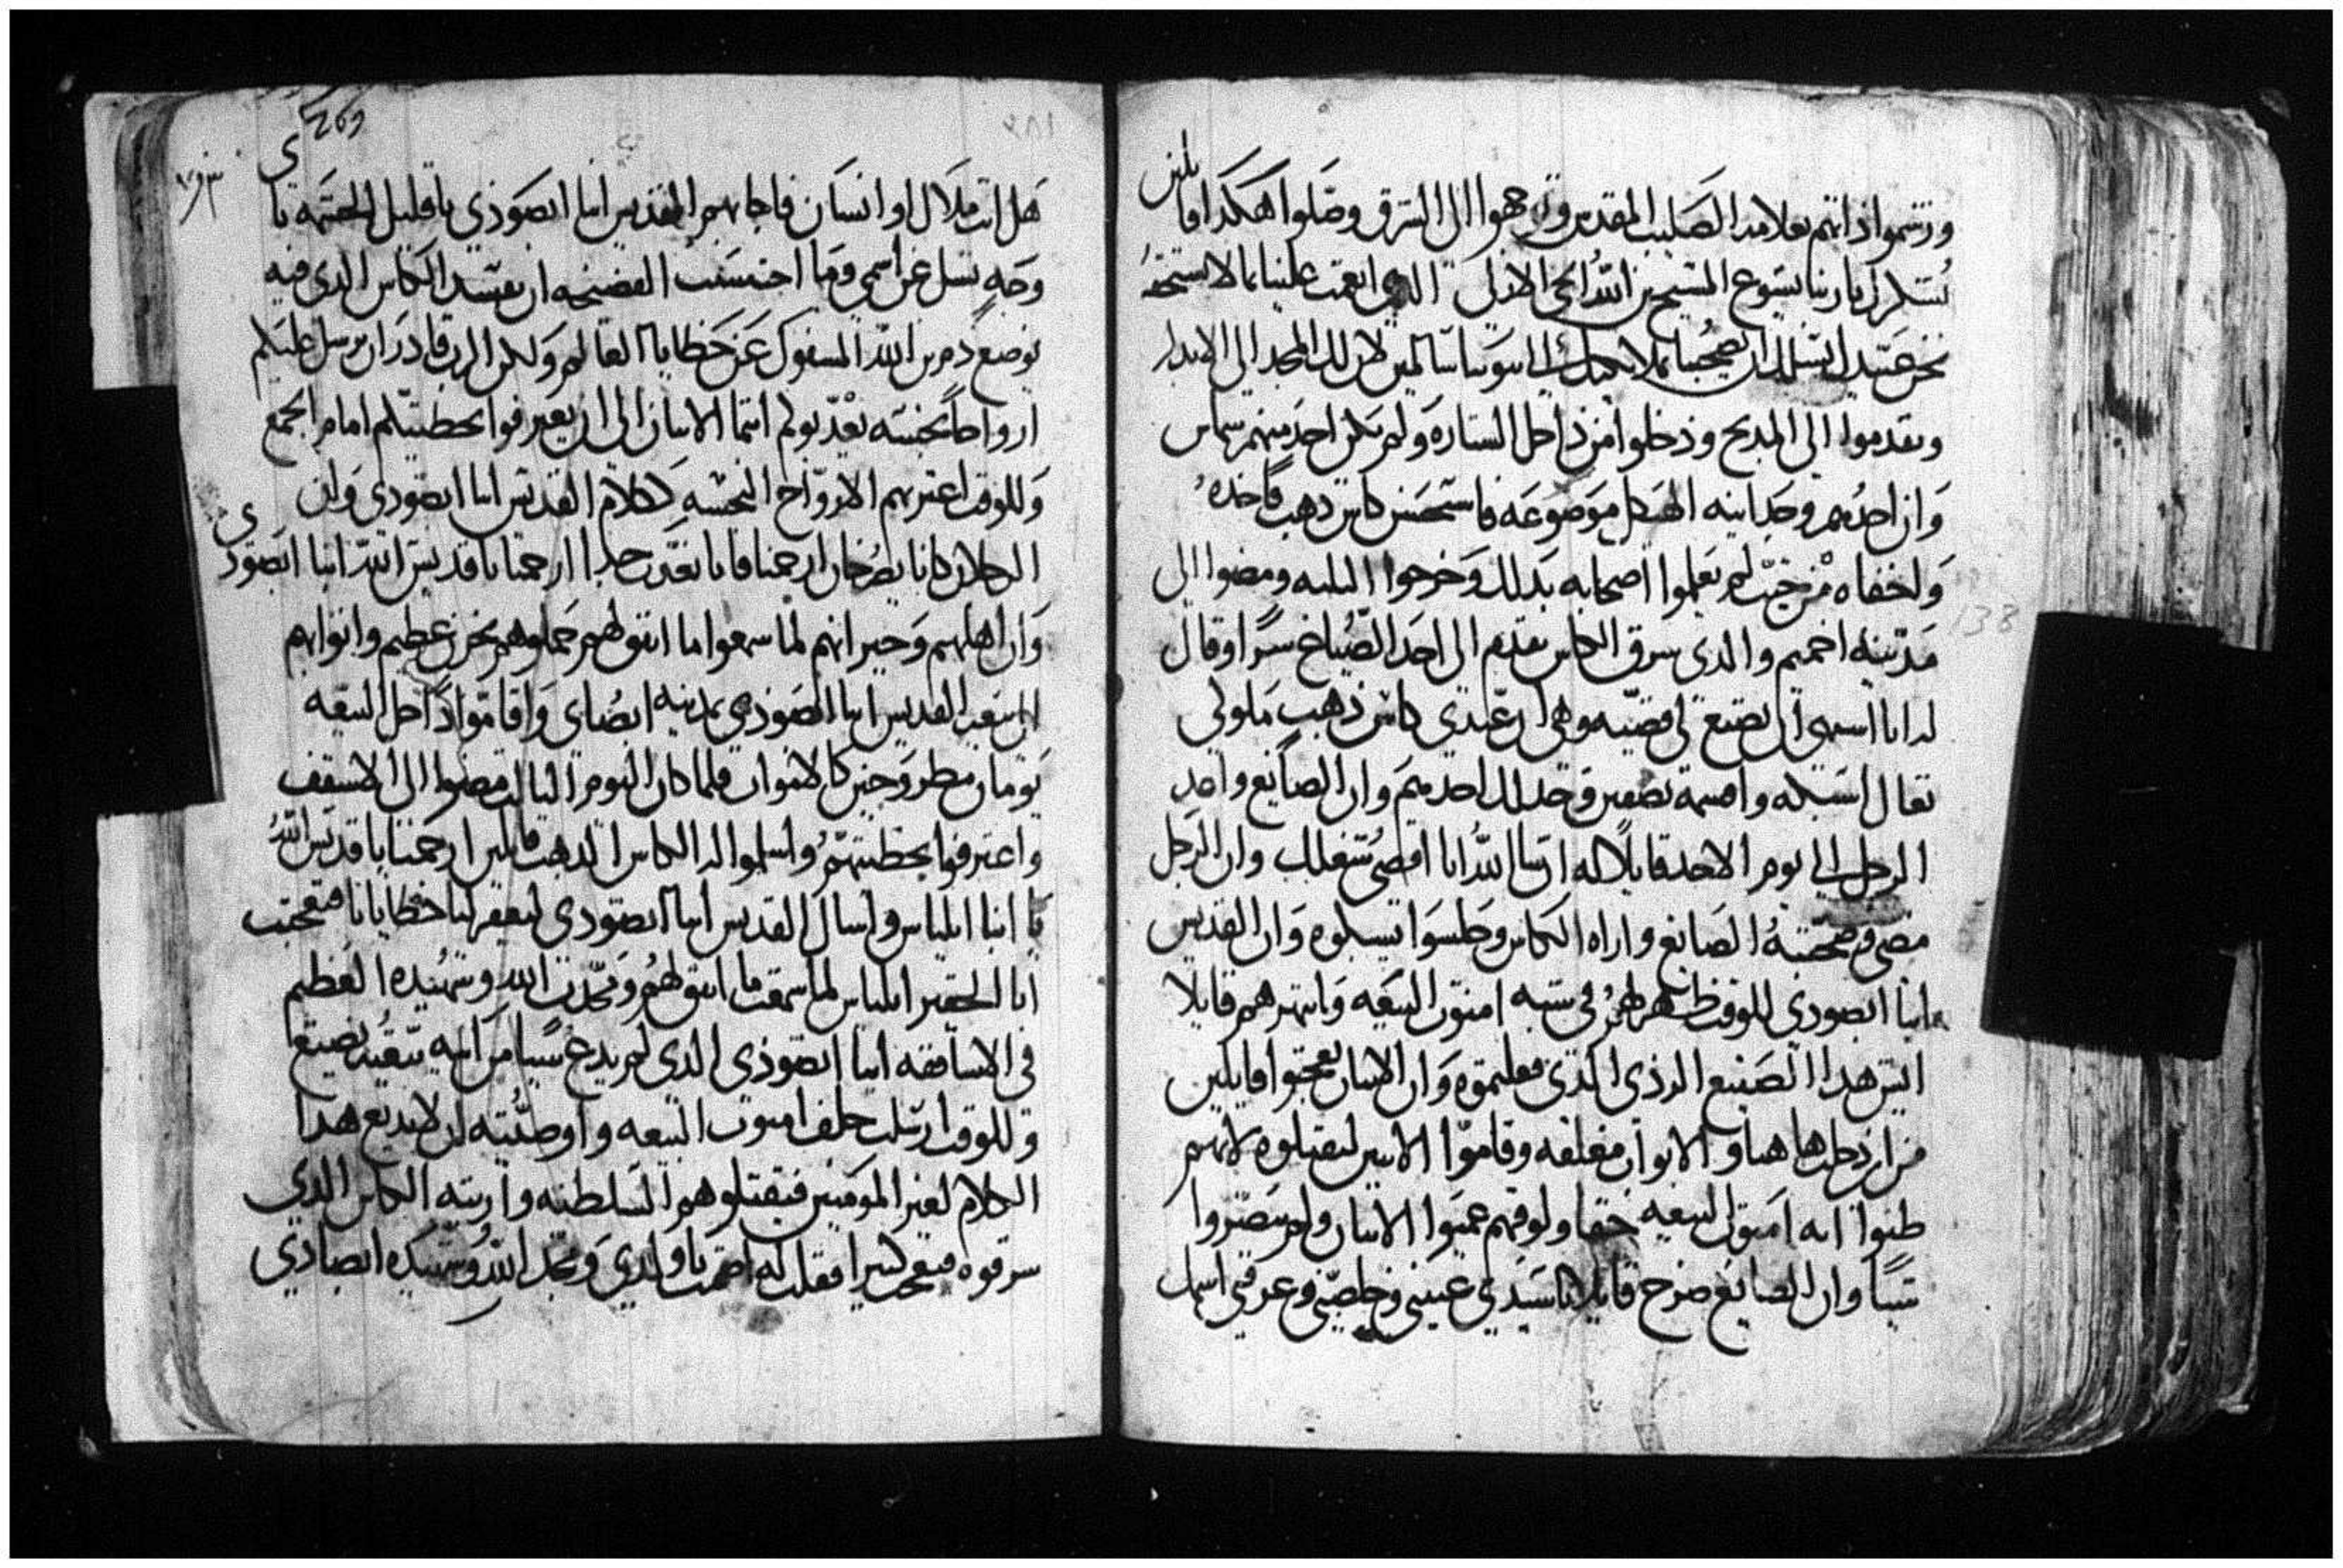 ورشموا ذاتهم بعلامة الصليب المقدس وتوجهوا الى الشرق وصلوا هكذا قايلين
نشكرك يا ربنا يسوع المسيح بن الله الحي الازلي الذي انعمت علينا بما لا نستحقه
نحن عبيدك نسلك ان تصحبنا بملايكتك الى بيوتنا سالمين لان لك المجد الى الابد
وتقدموا الى المذبح ودخلوا من داخل الستاره ولم يكن احد منهم شماس
وان احدهم وجد انية الهيكل موضوعه فاستحسن كاس دهب فاخده
واخفاه من حيت لم يعلموا اصحابه بدلك وخرجوا الثلثه ومضوا الى
مدينة اخميم والدي سرق الكاس تقدم الى احد الصياغ سرا وقال
له انا اشتهي ان تصنع لي قضيه وهي ان عندي كاس ذهب ملوكي
تعال اسبكه واقسمه نصفين وخد لك احدهم وان الصايغ واعد
الرجل الى يوم الاحد قايلا له ان شا الله انا اقضي شغلك وان الرجل
مضى وصحبته الصايغ واراه الكاس وجلسوا يسبكوه وان القديس
انبا ابصودي للوقت ظهر لهم في شبه امنوت البيعه وانتهرهم قايلا
ايش هدا الصنيع الردى الدي فعلتموه وان الاتنان تعجبوا قايلين
من اين دخل هاهنا والابواب مغلقه وقاموا الاتنين ليقتلوه لانهم
ظنوا انه امنوت البيعه حقا ولوقتهم عميوا الاتنان ولم يبصروا
شيا وان الصايغ صرخ قايلا يا سيدي عينني وخلصني وعرفني اسمك
269
٢٨١
هل انت ملاك او انسان فاجابهم القديس انبا ابصوذي يا قليل الحشمه باي
وجه تسل عن اسمي وما احتسبت الفضيحه ان تفسد الكاس الدي فيه
يوضع دم بن الله المسفوك عن خطايا العالم ولكن الرب قادر ان يرسل عليكم
ارواحا نجسه يعدبوكم انتما الاتنان الى ان تعترفوا بخطيتكم امام الجمع
وللوقت اعترتهم الارواح النجسه ككلام القديس انبا ابصودي وان
الرجلان كانا يصرخان ارحمنا فانا نعدب جدا ارحمنا يا قديس الله انبا ابصودي
وان اهلهم وجيرانهم لما سمعوا ما اتفق لهم حملوهم بحزن عظيم واتوا بهم
الى بيعة القديس انبا ابصوذي بمدينة ابصاي واقاموا داخل البيعه
يومان مطروحين كالاموات فلما كان اليوم الثالث مضوا الى الاسقف
واعترفوا بخطيتهم واسلموا له الكاس الدهب قايلين ارحمنا يا قديس الله
يا انبا ايلياس واسال القديس انبا ابصودي ليغفر لنا خطايانا فتعجبت
انا الحقير ايلياس لما سمعت ما اتفق لهم ومجدت الله وشهيده العظيم
في الاساقفه انبا ابصوذي الدي لم يدع شيا من انية بيعته يضيع
وللوقت ارسلت خلف امنوت البيعه واوصيته ان لا يديع هدا
الكلام لغير المومنين فيقتلوهم السلطنه واريته الكاس الدي
سرقوه فتعجب كثيرا فقلت له اصمت يا ولدي ومجد الله وشهيده ابصادي
138